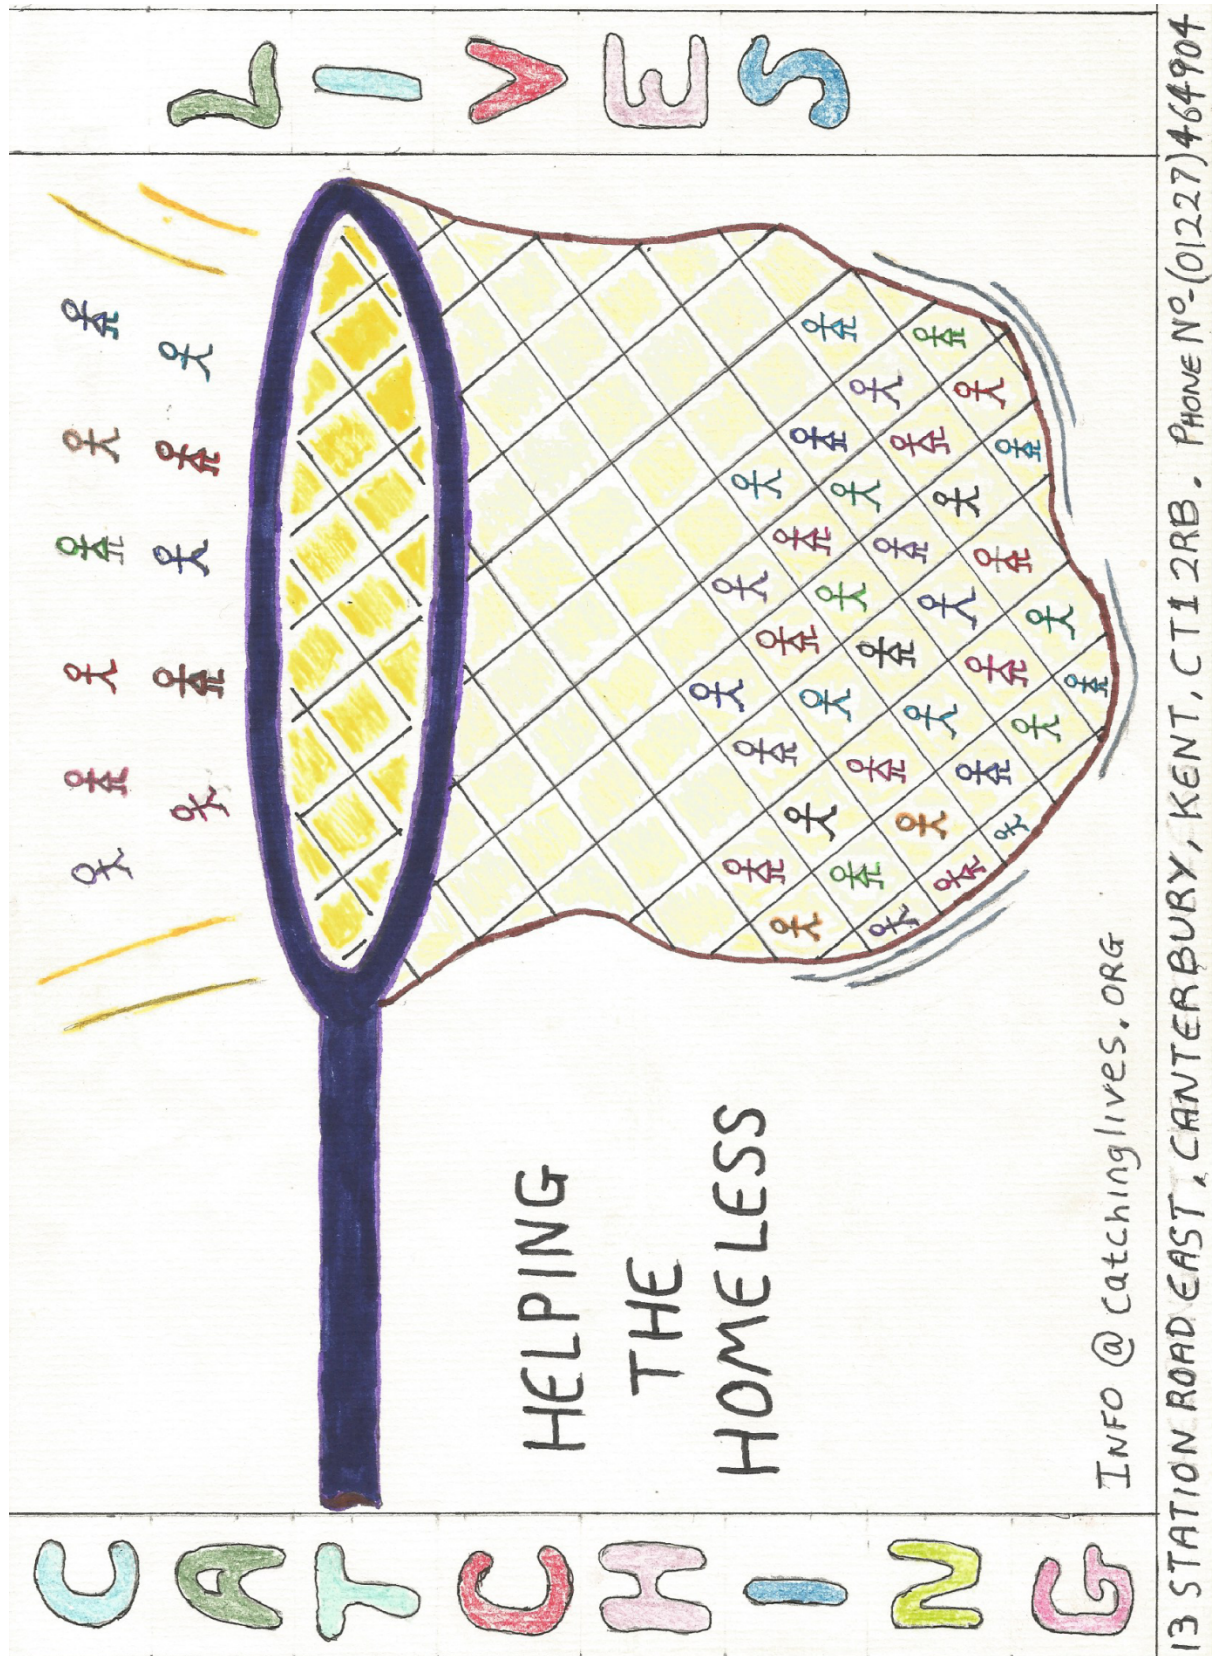 CATCHING
LIVES
HELPING
THE
HOMELESS
INFO @ catchinglives.ORG
13 STATION ROAD EAST, CANTERBURY, KENT, CT1 2RB. PHONE Nº-(01227)464904